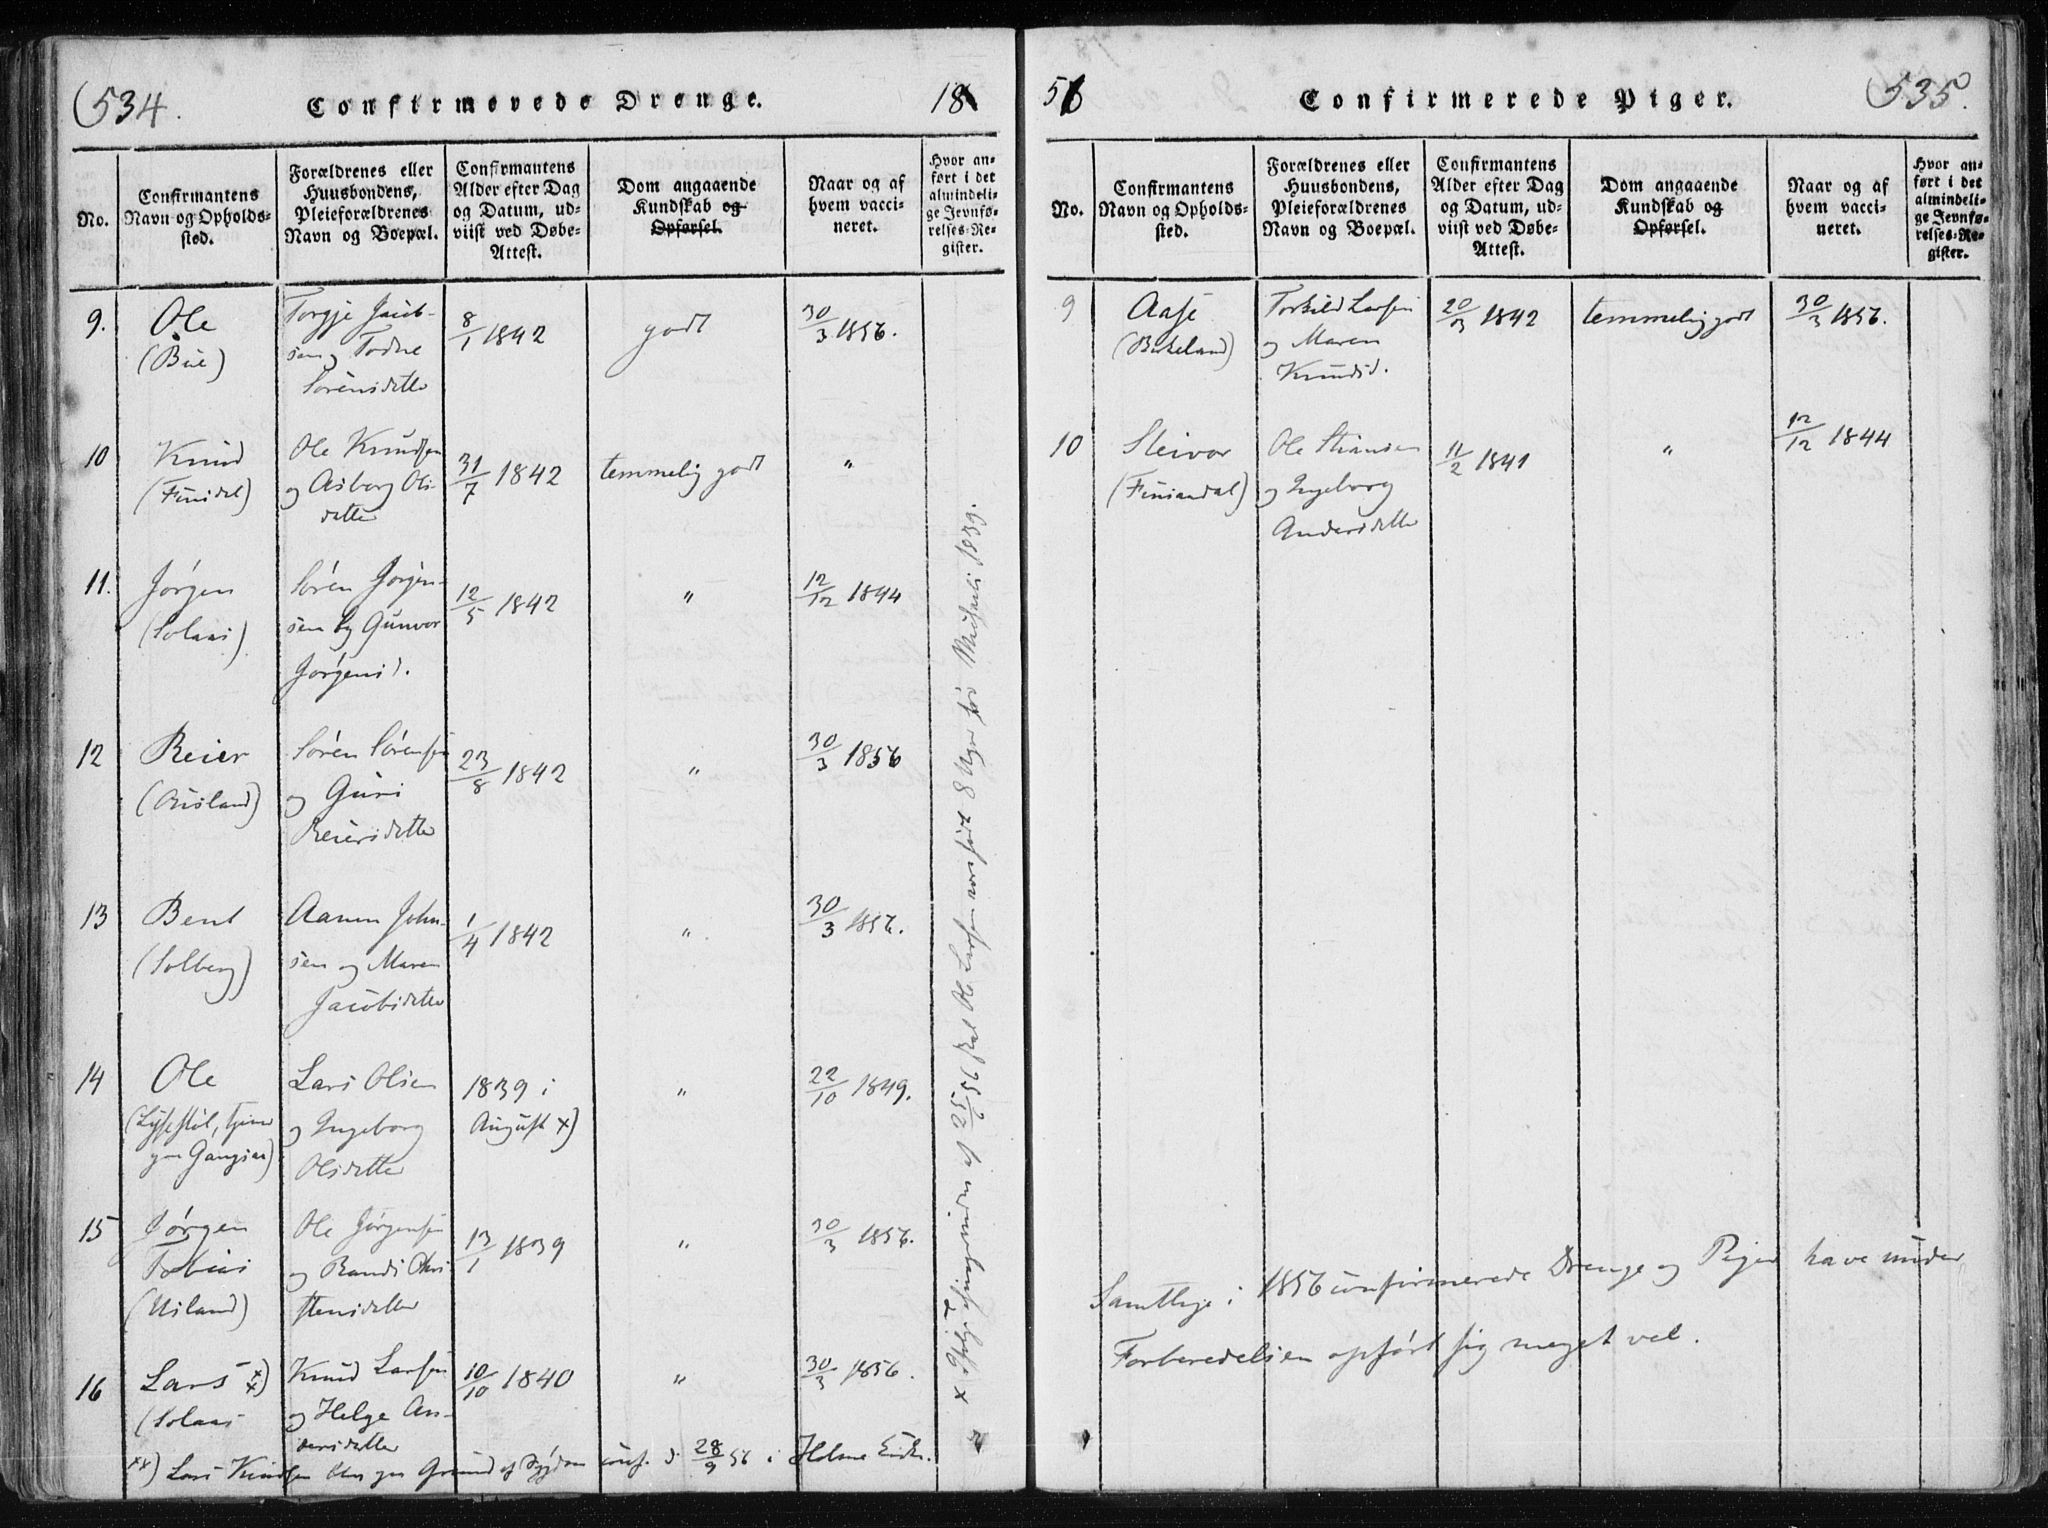 534.
Confirmerede Drenge.
18
No.
Confirmantens Navn og Opholds-sted.
Forældrenes eller Huusbondens, Pleieforældrenes Navn og Boepæl.
Confirmantens Alder efter Dag og Datum, ud-viist ved Døbe-Attest.
Dom angaaende Kundskab og Opførsel.
Naar og af hvem vacci-neret.
Hvor an-ført i det almindeli-ge Jevnfø-relses-Re-gister.
9.
Ole
(Bue)
Torgje Jacob-
sen og Todne
Sørensdatter
8/1 1842
godt
30/3 1856.
10
Knud
(Finsdal)
Ole Knudsen
og Asberg Ols-
datter
31/7 1842
temmelig godt
"
11.
Jørgen
(Solaas)
Søren Jørgen-
sen og Gunvor
Jørgensd.
12/5 1842
"
12/12 1844
12
Reier
(Ausland)
Søren Sørensen
og Guri
Reiersdatter
23/8 1842
"
30/3 1856
13
Bent
(Solberg)
Aanen John-
sen og Maren
Jacobsdatter
1/4 1842
"
30/3 1856.
14
Ole
Lars Olsen
og Ingeborg
Olsdatter
1839 i
August x)
"
22/10 1849.
15
Jørgen
Tobias
(Usland)
Ole Jørgensen
og Randi Chri
stensdatter
13/1 1839
"
30/3 1856.
16
Lars xx)
(Solaas
Knud Larsen
og Helge An-
dersdatter
10/10 1840
"
30/3 1856.
xx) Lars Knudsen conf. d. 28/9 56 i Holme
x 25/5 56 skal Ole Larsen være født 8 Uger før Michaeli 1839.
56
Confirmerede Piger.
535.
No.
Confirmantens Navn og Opholds-sted.
Forældrenes eller Huusbondens, Pleieforældrenes Navn og Boepæl.
Confirmantens Alder efter Dag og Datum, ud-viist ved Døbe-Attest.
Dom angaaende Kundskab og Opførsel.
Naar og af hvem vacci-neret.
Hvor an-ført i det almindeli-ge Jevnfø-relses-Re-gister.
9
Aase
(Birkeland)
Torkild Larsen
og Maren
Knudsd.
20/3 1842
temmelig godt
30/3 1856.
10
Sleivor
Ole
og Ingeborg
Andersdatter
11/2 1841
"
12/12 1844
Samtlige i 1856 confirmerede Drenge og Piger have under
Forberedelsen opført sig meget vel.